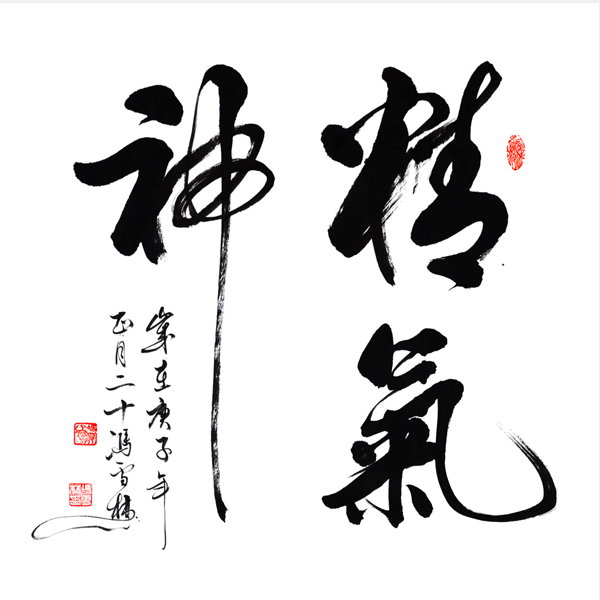 精氣
神
歲在庚子年
正月二十馮雪林